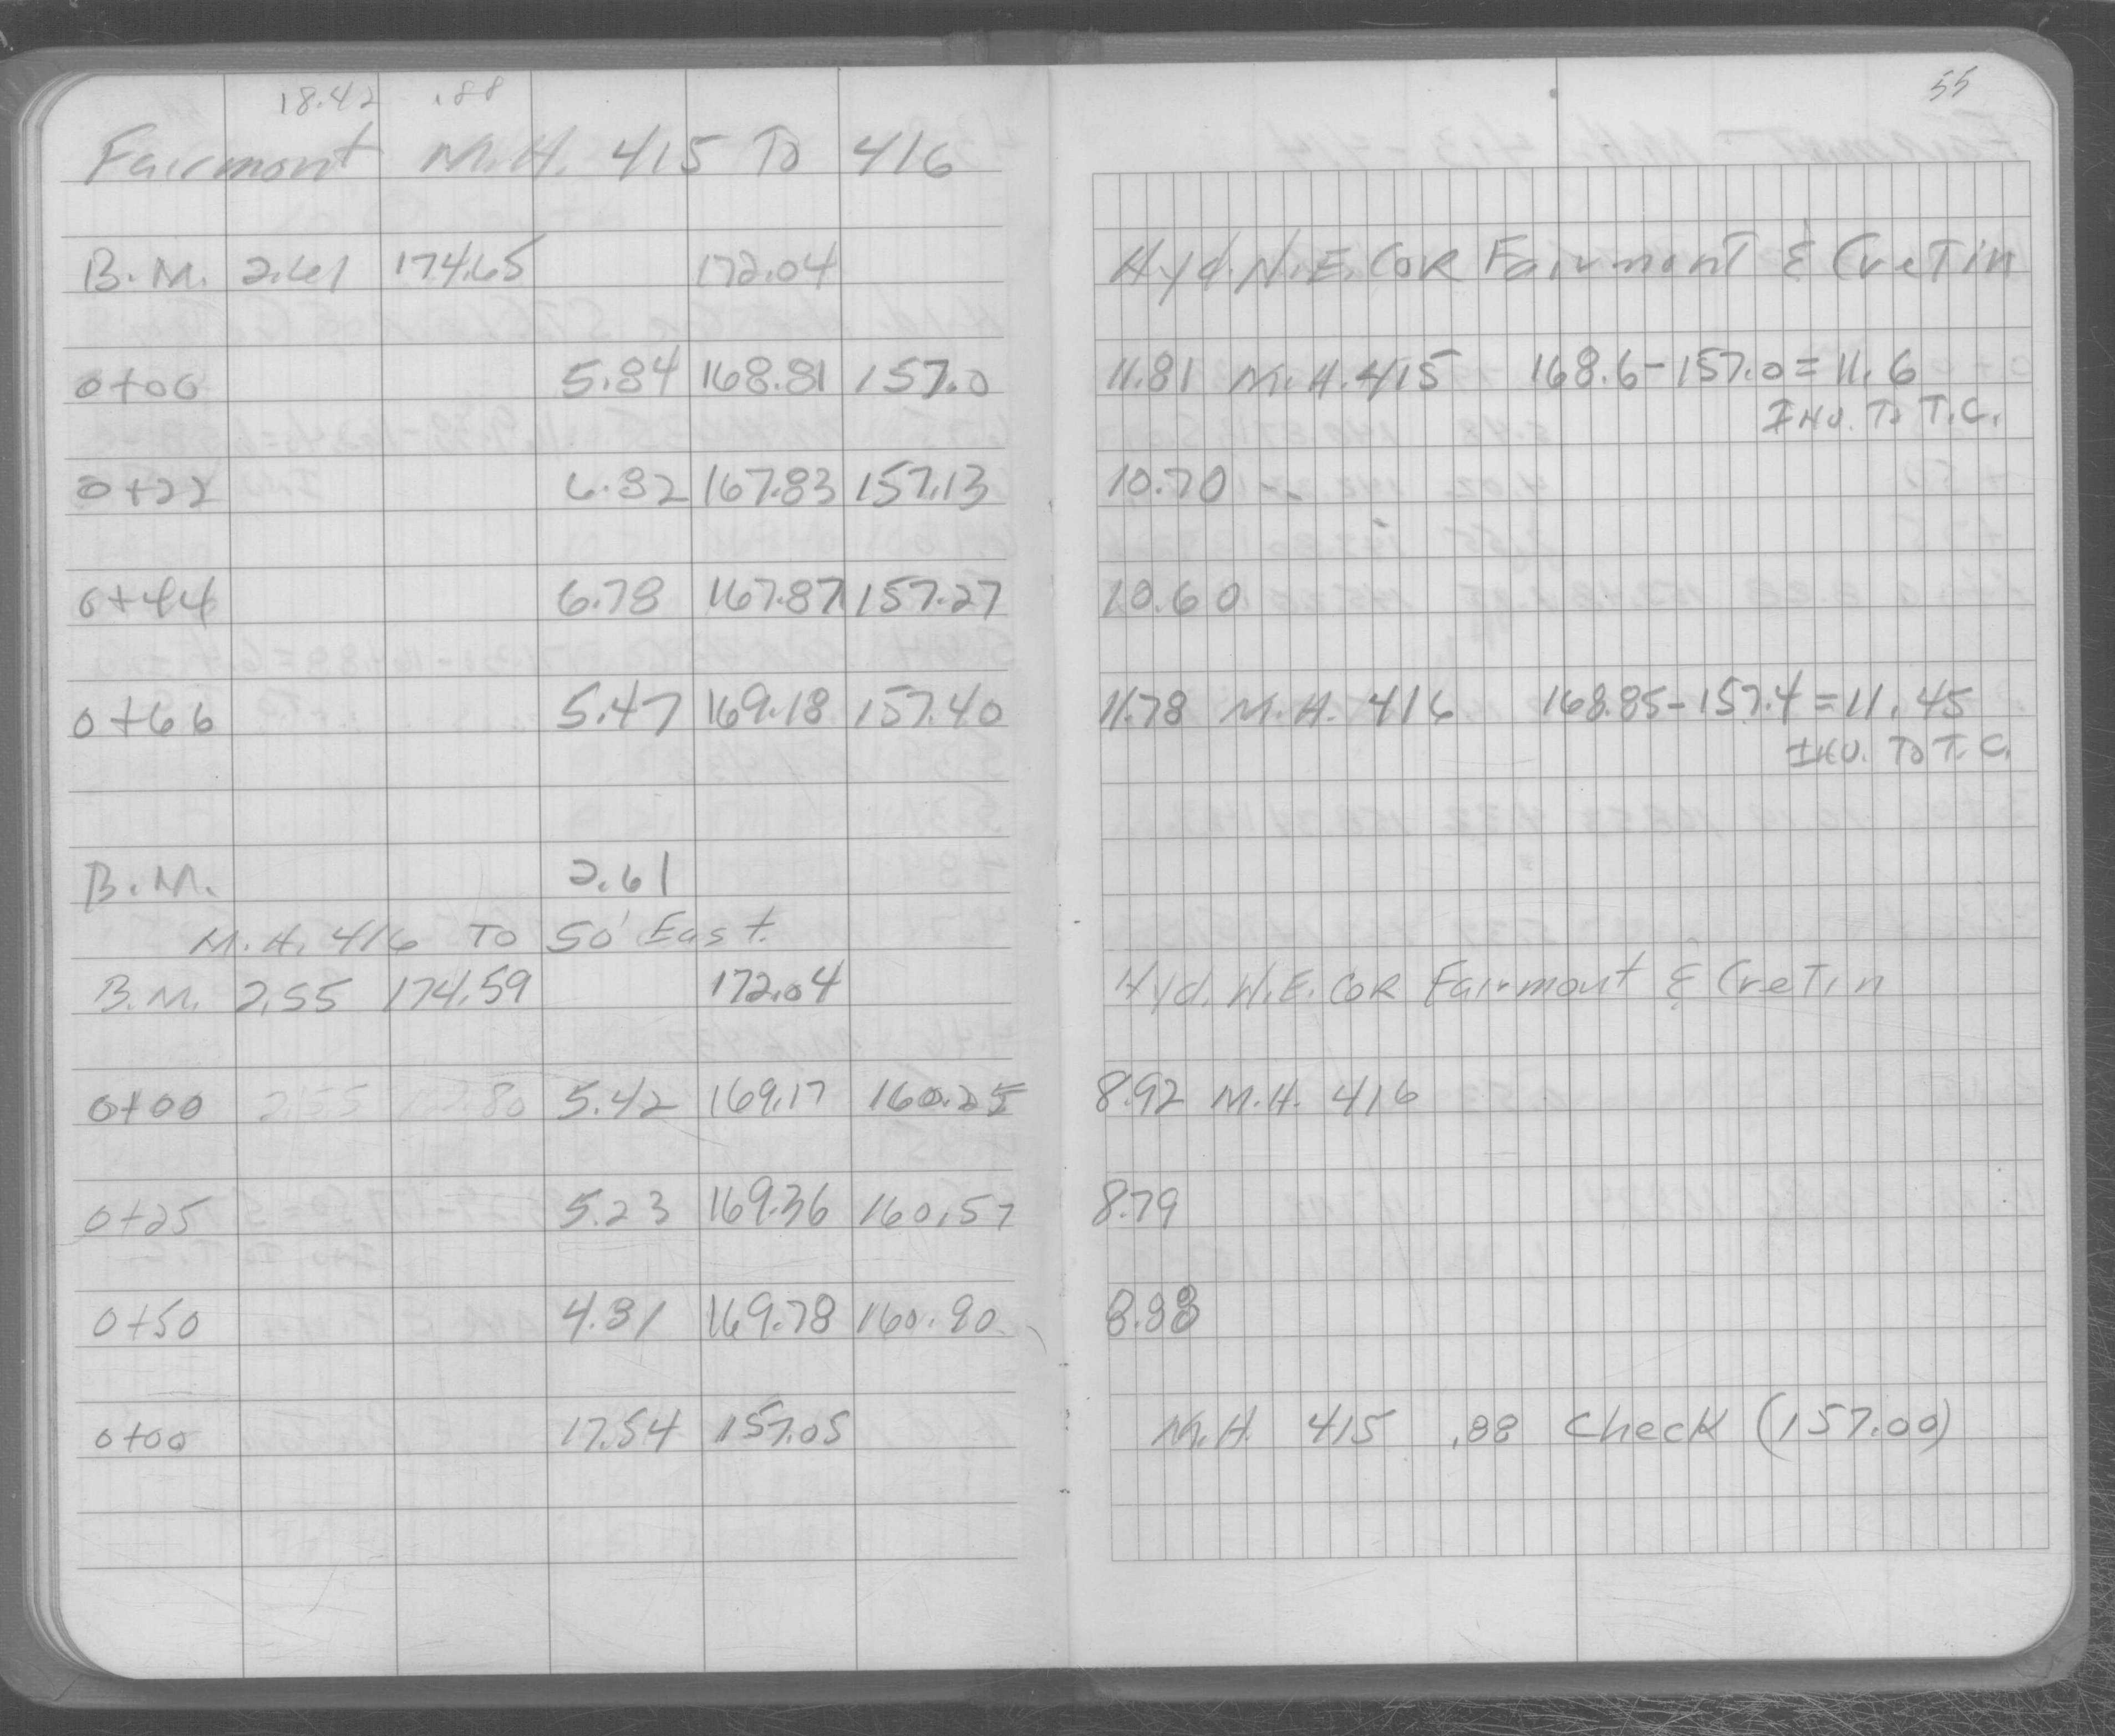 18.42 .88
55
Fairmont M.H. 415 To 416
B.M. 2.61 174.65 172.04 Hyd. N.E. COR Fairmont & Cretin
0+00 5.84 168.81 157.0 11.81 M.H. 415 168.6-157.0=11.6
INV. To T.C.
0+22 6.82 167.83 157.13 10.70
0+44 6.78 167.87 157.27 10.60
0+66 5.47 169.18 157.40 11.78 M.H. 416 168.85-157.4=11.45
INV. To T.C.
B.M. 2.61
M.H. 416 To 50' East.
B.M. 2.55 174.59 172.04 Hyd. N.E. COR Fairmont & Cretin
0+00 5.42 169.17 160.25 8.92 M.H. 416
0+25 5.23 169.36 160.57 8.79
0+50 4.81 169.78 160.90 8.88
0+00 17.54 157.05 M.H. 415 .88 Check (157.00)